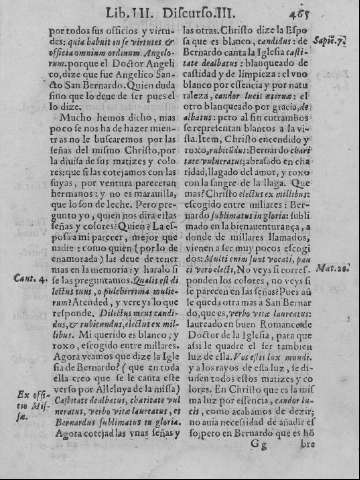 Lib. III. Discurso. III. 465
por todos sus officios y virtu-
des: quia habuit in se virtutes &
officia omnium ordinum Angelo-
rum. porque el Doctor Angeli
co, dize que fue Angelico San-
cto San Bernardo. Quien duda
sino que lo deue de ser pues el
lo dize.
Mucho hemos dicho, mas
poco se nos ha de hazer mien-
tras no le buscaremos por las
señas del mismo Christo, por
la diuisa de sus matizes y colo
res: que si las cotejamos con las
suyas, por ventura pareceran
hermanos: y no es marauilla,
que lo son de leche. Pero pre-
gunto yo, quien nos dira essas
señas y colores? Quien? La es-
posa mi parecer, mejor que
nadie: como quien (por lo de
enamorada) las deue de tener
mas en la memoria: y haralo si
se las preguntamos. Qualis est di
lectus tuus, o pulcherrima mulie-
rum? Atended, y vereys lo que
responde. Dilectus meus candi-
dus, & rubicundus, electus ex mil-
libus. Mi querido es blanco, y
roxo, escogido entre millares.
Agora veamos que dize la Igle
sia de Bernardo? (que en toda
ella creo que se le canta este
verso por Alleluya de la missa)
Castitate dealbatus, charitate vul-
neratus, verbo vitæ laureatus, es
Bernardus sublimatus in gloria.
Agora cotejad las vnas señas y
Cant. 4.
Ex offi-
tio Mis-
sæ.
las otras. Christo dize la Espo
sa que es blanco, candidus: de
Bernardo canta la Iglesia casti-
tate dealbatus: blanqueado de
castidad y de limpieza: el vno
blanco por essencia y por natu
raleza, candor lucis æternæ: el
otro blanqueado por gracia, de
albatus: pero al fin entrambos
se representan blancos a la vi-
sta. Item, Christo encendido y
roxo, rubicundus: Bernardo chari
tate vulneratus: abrasado en cha
ridad, llagado del amor, y roxo
con la sangre de la llaga. Que
mas? Christo electus ex millibus:
escogido entre millares: Ber-
nardo sublimatus in gloria: subli
mado en la bienauenturança, a
donde de millares llamados,
vienen a ser muy pocos escogi
dos: Multi enim sunt vocati, pau
ci vero electi, No veys si corres-
ponden los colores, no veys si
se parecen en las señas? Pues aũ
le queda otra mas a San Bernar
do, que es, verbo vitæ laureatus:
laureado en buen Romance de
Doctor de la Iglesia, para que
assi le quadre el ser tambien
luz de ella. Vos estis lux mundi.
y a los rayos de essa luz, se di-
uisen todos essos matizes y co
lores. En Christo que es la mis
ma luz por essencia, candor lu-
cis, como acabamos de dezir;
no auia necessidad de añadir es
so; pero en Bernardo que es hõ
Sapiẽ. 7.
Mat. 20.
G g bre